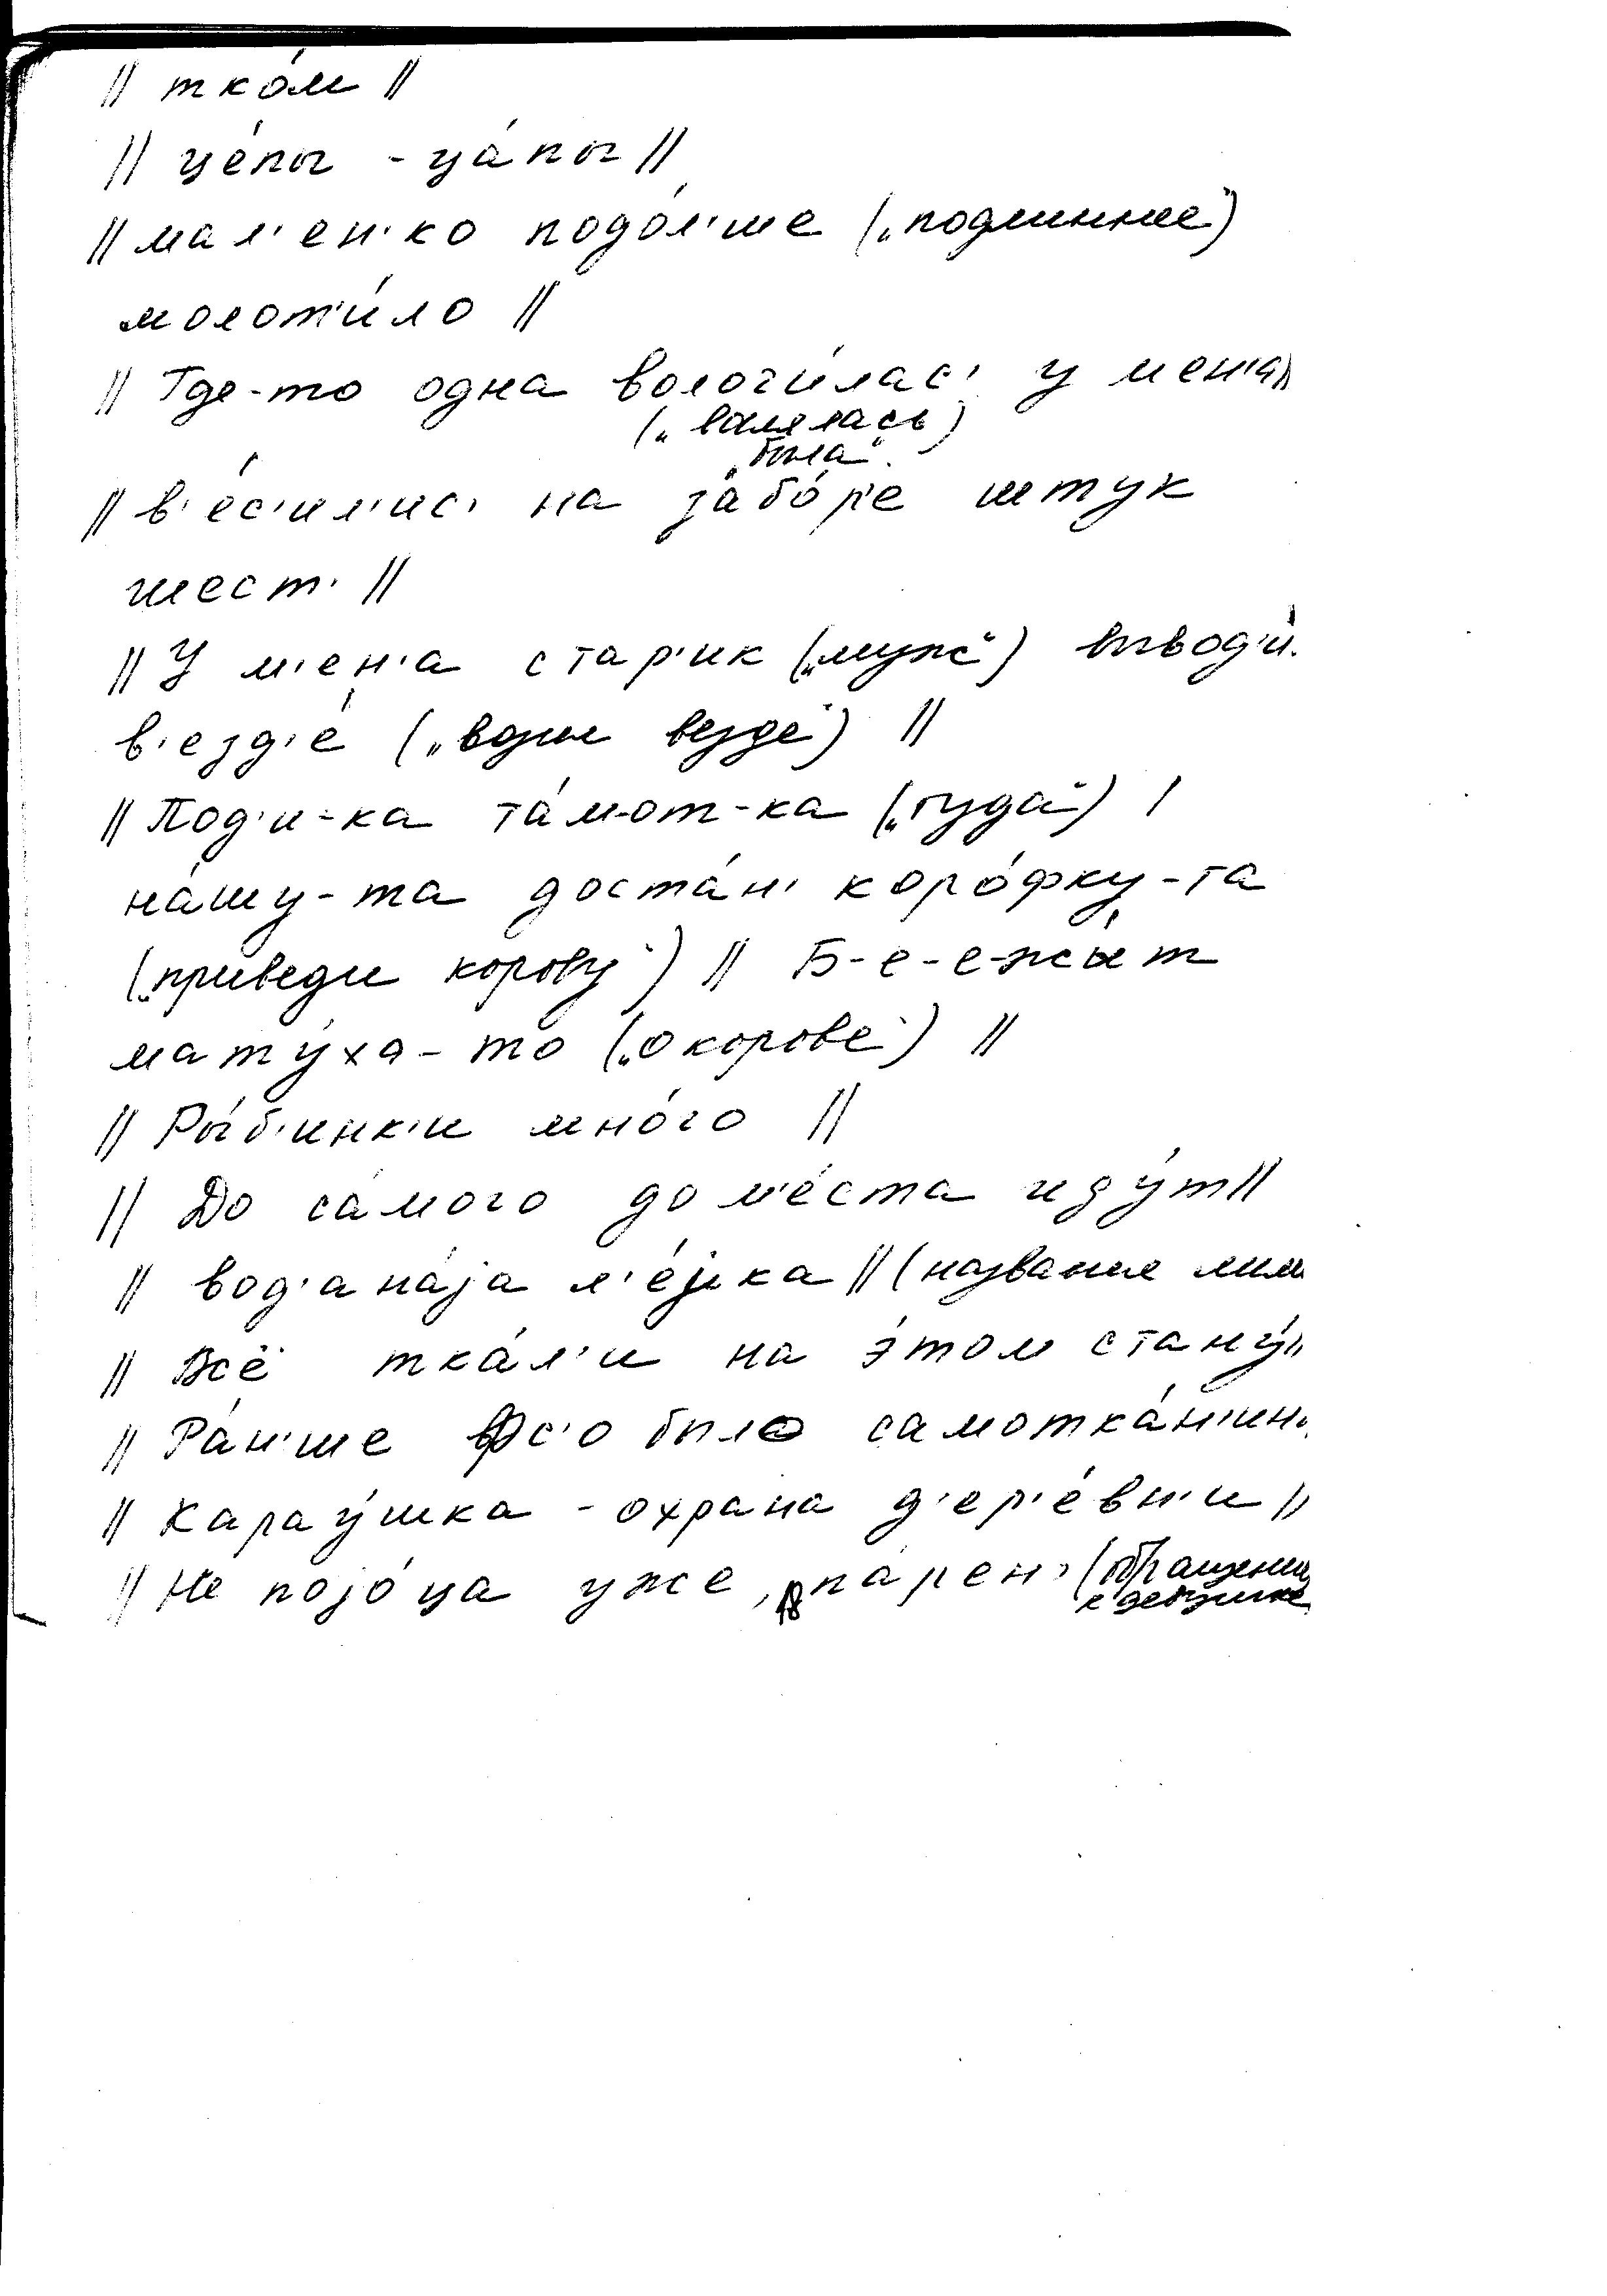 || тко́м ||
|| це́пы - ца́пы ||
|| мал'ен'ко подо́л'ше („подлиннее")
молот'и́ло ||
|| Где-то одна волочи́лас' у мен'а́ ||
(„валялась)
„была".
|| в'е́с'ил'ис' на забо́р'е штук
шест' ||
|| У м'ен'а стар'ик („муж") вывод'и́.
в'езд'е́ („води везде") ||
|| Под'и-ка та́м-от-ка („туда") |
на́шу-та доста́н' коро́фку-та
(„приведи корову") || Б-е-е-жы́т
мату́ха-то („о корове") ||
|| Ры́б'инк'и мно́го ||
|| До са́мого до м'е́ста иду́т ||
|| вод'ана́jа л'е́jка || (название
|| Всё тка́л'и на э́том стану́ ||
|| Ра́н'ше фс'о было самотка́н'ин
|| Карау́шка - охрана д'ер'е́вн'и ||
|| Не поjо́ца уже, па́рен' (обращение
к девушке